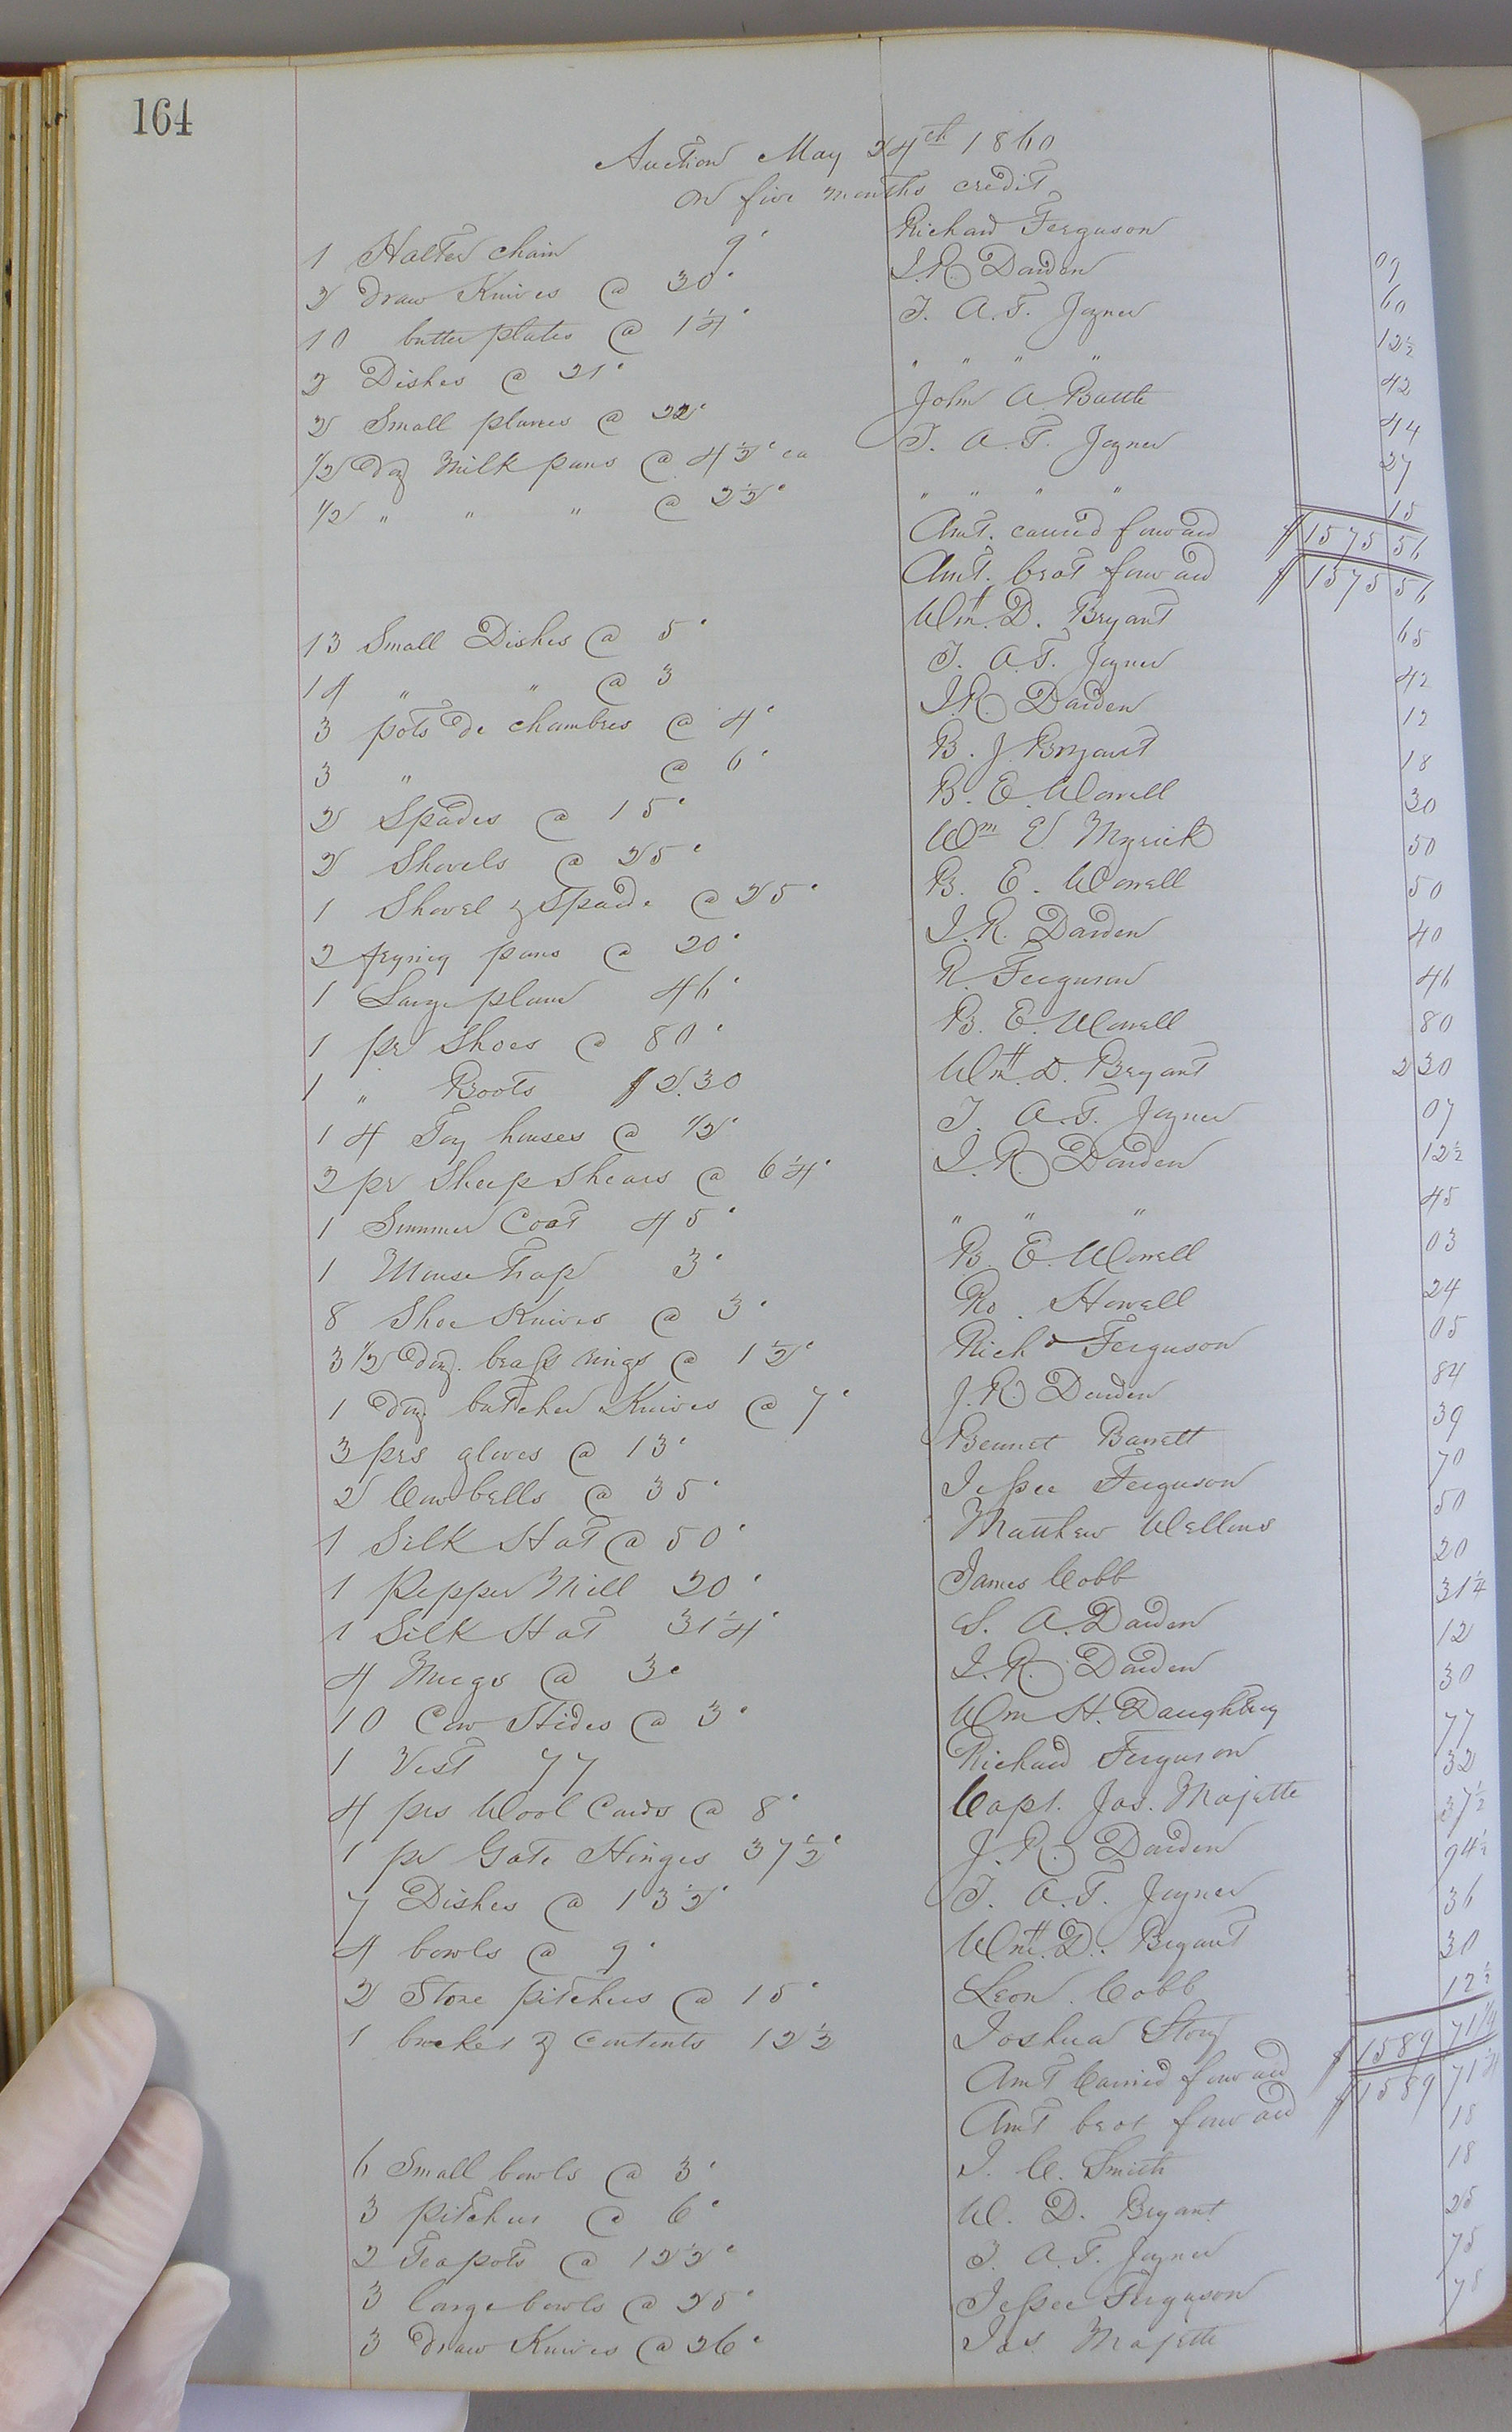 164
Auction May 24th 1860
on five months credit
1 Halter chain 9c Richard Ferguson 09
2 draw Knives @ 30c J. R. Darden 60
10 butter plates @ 1¼c T. A. T. Joyner 12½
2 Dishes @ 21c " " " " 42
2 Small planes @ 22c John A Battle 44
1/2 doz Milk pans @ 4½c ea T. A. T. Joyner 27
1/2 " " " @ 2½c " " " " 15
Amt. carried forward $1575 56
Amt. brot forward $1575 56
13 Small Dishes @ 5c Wm. D. Bryant 65
14 " " @ 3 T. A. T. Joyner 42
3 pots de chambres @ 4c J. R. Darden 12
3 " @ 6c B. J. Bryant 18
2 Spades @ 15c B. E. Worrell 30
2 Shovels @ 25c Wm E Myrick 50
1 Shovel & Spade @ 25c B. E. Worrell 50
2 frying pans @ 20c J. R. Darden 40
1 Large plane 46c R. Ferguson 46
1 pr Shoes @ 80c B. E. Worrell 80
1 " Boots $2.30 Wm. D. Bryant 2 30
14 Toy houses @ 1/2c T. A. T. Joyner 07
2 pr Sheep Shears @ 6¼c J. R. Darden 12½
1 Summer Coat 45c " " " 45
1 Mouse Trap 3c B. E. Worrell 03
8 Shoe Knives @ 3c Ro. Howell 24
3 1/2 doz. brass rings @ 1½c Richd Ferguson 05
1 doz butcher Knives @ 7c J. R. Darden 84
3 prs gloves @ 13c Bennet Barrett 39
2 Cow bells @ 35c Jessee Ferguson 70
1 Silk Hat @ 50c Matthew Wellons 50
1 Pepper Mill 20c James Cobb 20
1 Silk Hat 31¼c S. A. Darden 31¼
4 Mugs @ 3c J. R. Darden 12
10 Cow Hides @ 3c Wm H. Daughtrey 30
1 Vest 77 Richard Ferguson 77
4 prs Wool Cards @ 8c Capt. Jas. Majette 32
1 pr Gate Hinges 37½c J. R. Darden 37½
7 Dishes @ 13½c T. A. T. Joyner 94½
4 bowls @ 9c Wm. D. Bryant 36
2 Stone pitchers @ 15c Leon. Cobb 30
1 bucket & Contents 12½ Joshua Story 12½
Amt Carried forward $1589 71¼
Amt brot forward $1589 71¼
6 Small bowls @ 3c J. C. Smith 18
3 pitchers @ 6c W. D. Bryant 18
2 Teapots @ 12½c T. A. T. Joyner 25
3 large bowls @ 25c Jessee Ferguson 75
3 draw Knives @ 26c Jas Majette 78